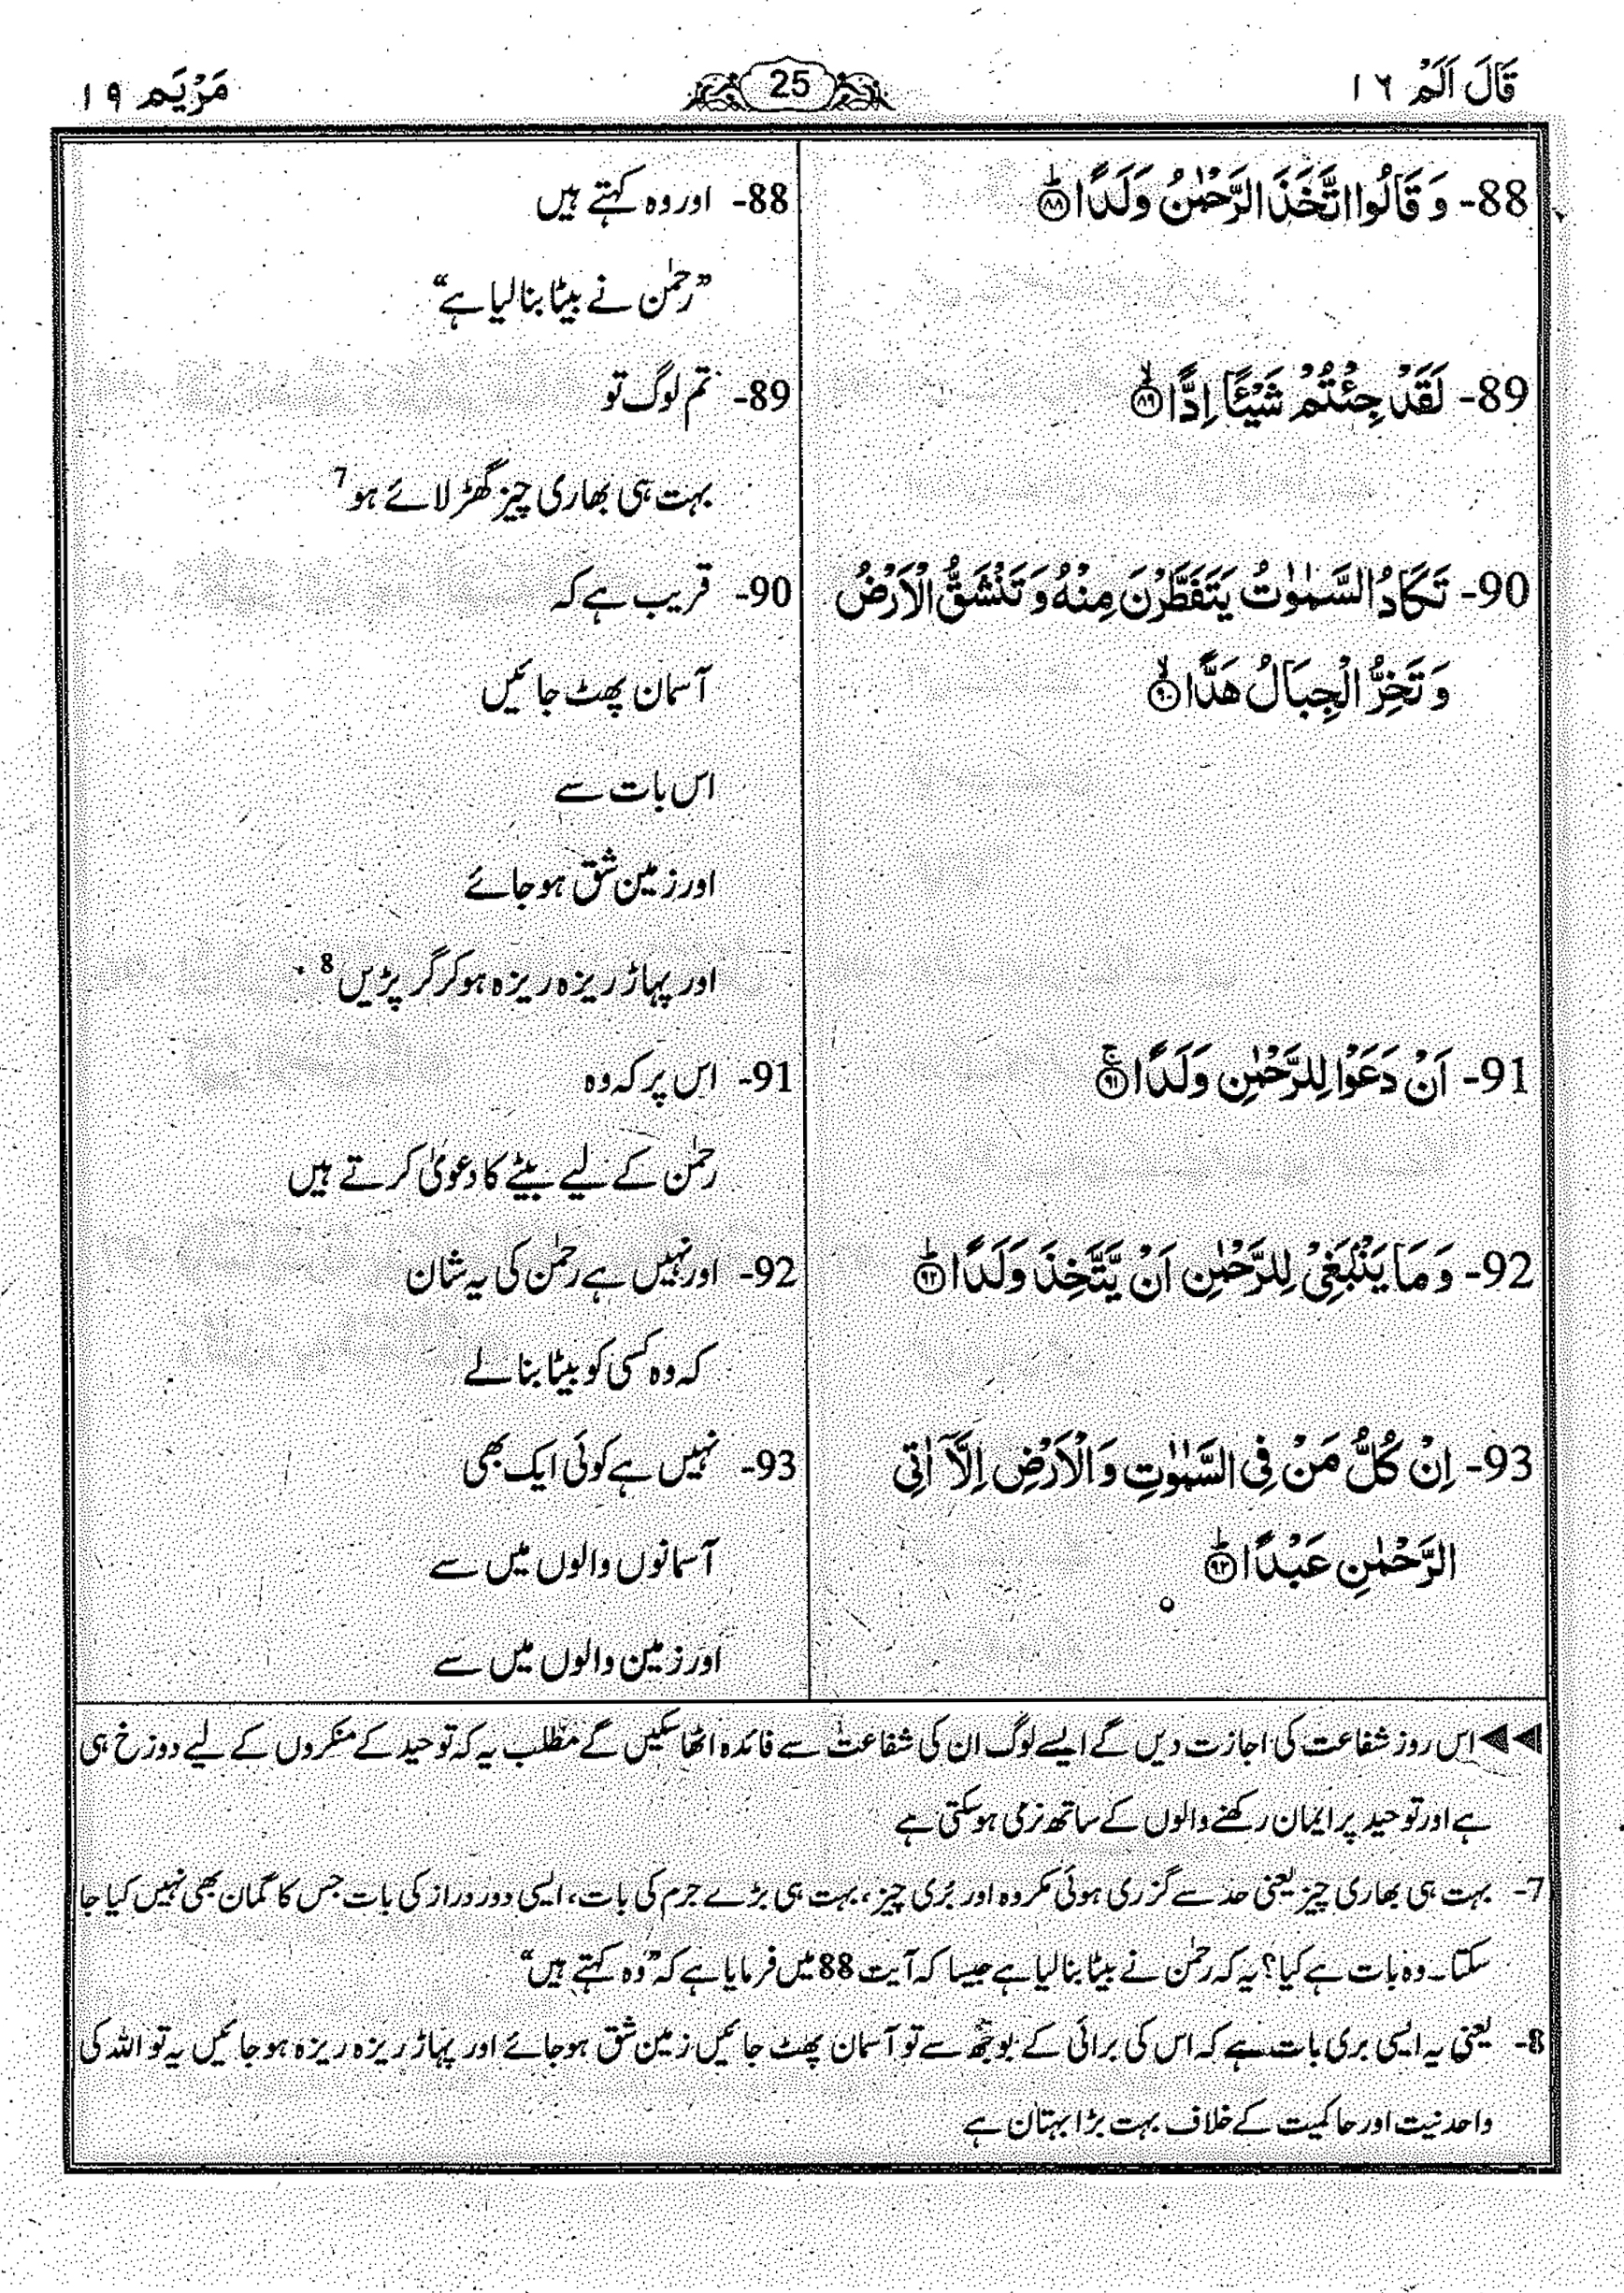 قَالَ اَلَمْ ١٦
25
مَرْيَم ١٩
88- وَ قَالُوا اتَّخَذَ الرَّحْمٰنُ وَلَدًا ﴿٨٨﴾ؕ
89- لَقَدْ جِئْتُمْ شَيْـًٔا اِدًّا ﴿٨٩﴾ۙ
90- تَكَادُ السَّمٰوٰتُ يَتَفَطَّرْنَ مِنْهُ وَ تَنْشَقُّ الْاَرْضُ
وَ تَخِرُّ الْجِبَالُ هَدًّا ﴿٩٠﴾ۙ
91- اَنْ دَعَوْا لِلرَّحْمٰنِ وَلَدًا ﴿٩١﴾ۚ
92- وَ مَا يَنْۢبَغِيْ لِلرَّحْمٰنِ اَنْ يَّتَّخِذَ وَلَدًا ﴿٩٢﴾ؕ
93- اِنْ كُلُّ مَنْ فِي السَّمٰوٰتِ وَ الْاَرْضِ اِلَّاۤ اٰتِي
الرَّحْمٰنِ عَبْدًا ﴿٩٣﴾ؕ
88- اور وہ کہتے ہیں
”رحمٰن نے بیٹا بنا لیا ہے“
89- تم لوگ تو
بہت ہی بھاری چیز گھڑ لائے ہو 7
90- قریب ہے کہ
آسمان پھٹ جائیں
اس بات سے
اور زمین شق ہو جائے
اور پہاڑ ریزہ ریزہ ہو کر گر پڑیں 8
91- اس پر کہ وہ
رحمٰن کے لیے بیٹے کا دعویٰ کرتے ہیں
92- اور نہیں ہے رحمٰن کی یہ شان
کہ وہ کسی کو بیٹا بنا لے
93- نہیں ہے کوئی ایک بھی
آسمانوں والوں میں سے
اور زمین والوں میں سے
◀◀ اس روز شفاعت کی اجازت دیں گے ایسے لوگ ان کی شفاعت سے فائدہ اٹھا سکیں گے مطلب یہ کہ توحید کے منکروں کے لیے دوزخ ہی
ہے اور توحید پر ایمان رکھنے والوں کے ساتھ نرمی ہو سکتی ہے
7- بہت ہی بھاری چیز یعنی حد سے گزری ہوئی مکروہ اور بُری چیز، بہت ہی بڑے جرم کی بات، ایسی دور دراز کی بات جس کا گمان بھی نہیں کیا جا
سکتا۔ وہ بات ہے کیا؟ یہ کہ رحمٰن نے بیٹا بنا لیا ہے جیسا کہ آیت 88 میں فرمایا ہے کہ ”وہ کہتے ہیں“
8- یعنی یہ ایسی بری بات ہے کہ اس کی برائی کے بوجھ سے تو آسمان پھٹ جائیں زمین شق ہو جائے اور پہاڑ ریزہ ریزہ ہو جائیں یہ تو اللہ کی
واحدنیت اور حاکمیت کے خلاف بہت بڑا بہتان ہے